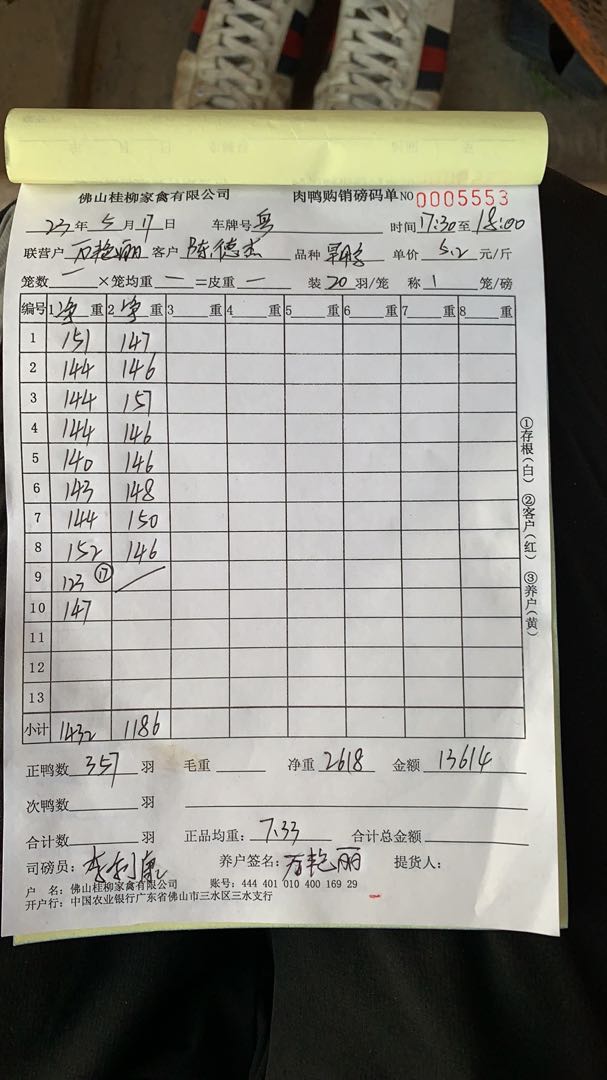 佛山桂柳家禽有限公司 肉鸭购销磅码单 NO 0005553
23年5月17日 车牌号 粤 时间 17:30至18:00
联营户 石艳丽 客户 陈德杰 品种 单价 5.2 元/斤
笼数 一 ×笼均重 一 =皮重 一 装 20 羽/笼 称 1 笼/磅
编号 1 净 重 2 净 重 3 重 4 重 5 重 6 重 7 重 8 重
1 151 147
2 144 146
3 144 157
4 144 146
5 140 146
6 143 148
7 144 150
8 152 146
9 123 ⑰
10 147
11
12
13
小计 1432 1186
正鸭数 357 羽 毛重 净重 2618 金额 13614
次鸭数 羽
合计数 羽 正品均重: 7.33 合计总金额
司磅员: 李利康 养户签名: 石艳丽 提货人:
户 名: 佛山桂柳家禽有限公司 账号: 444 401 010 400 169 29
开户行: 中国农业银行广东省佛山市三水区三水支行
①存根(白) ②客户(红) ③养户(黄)